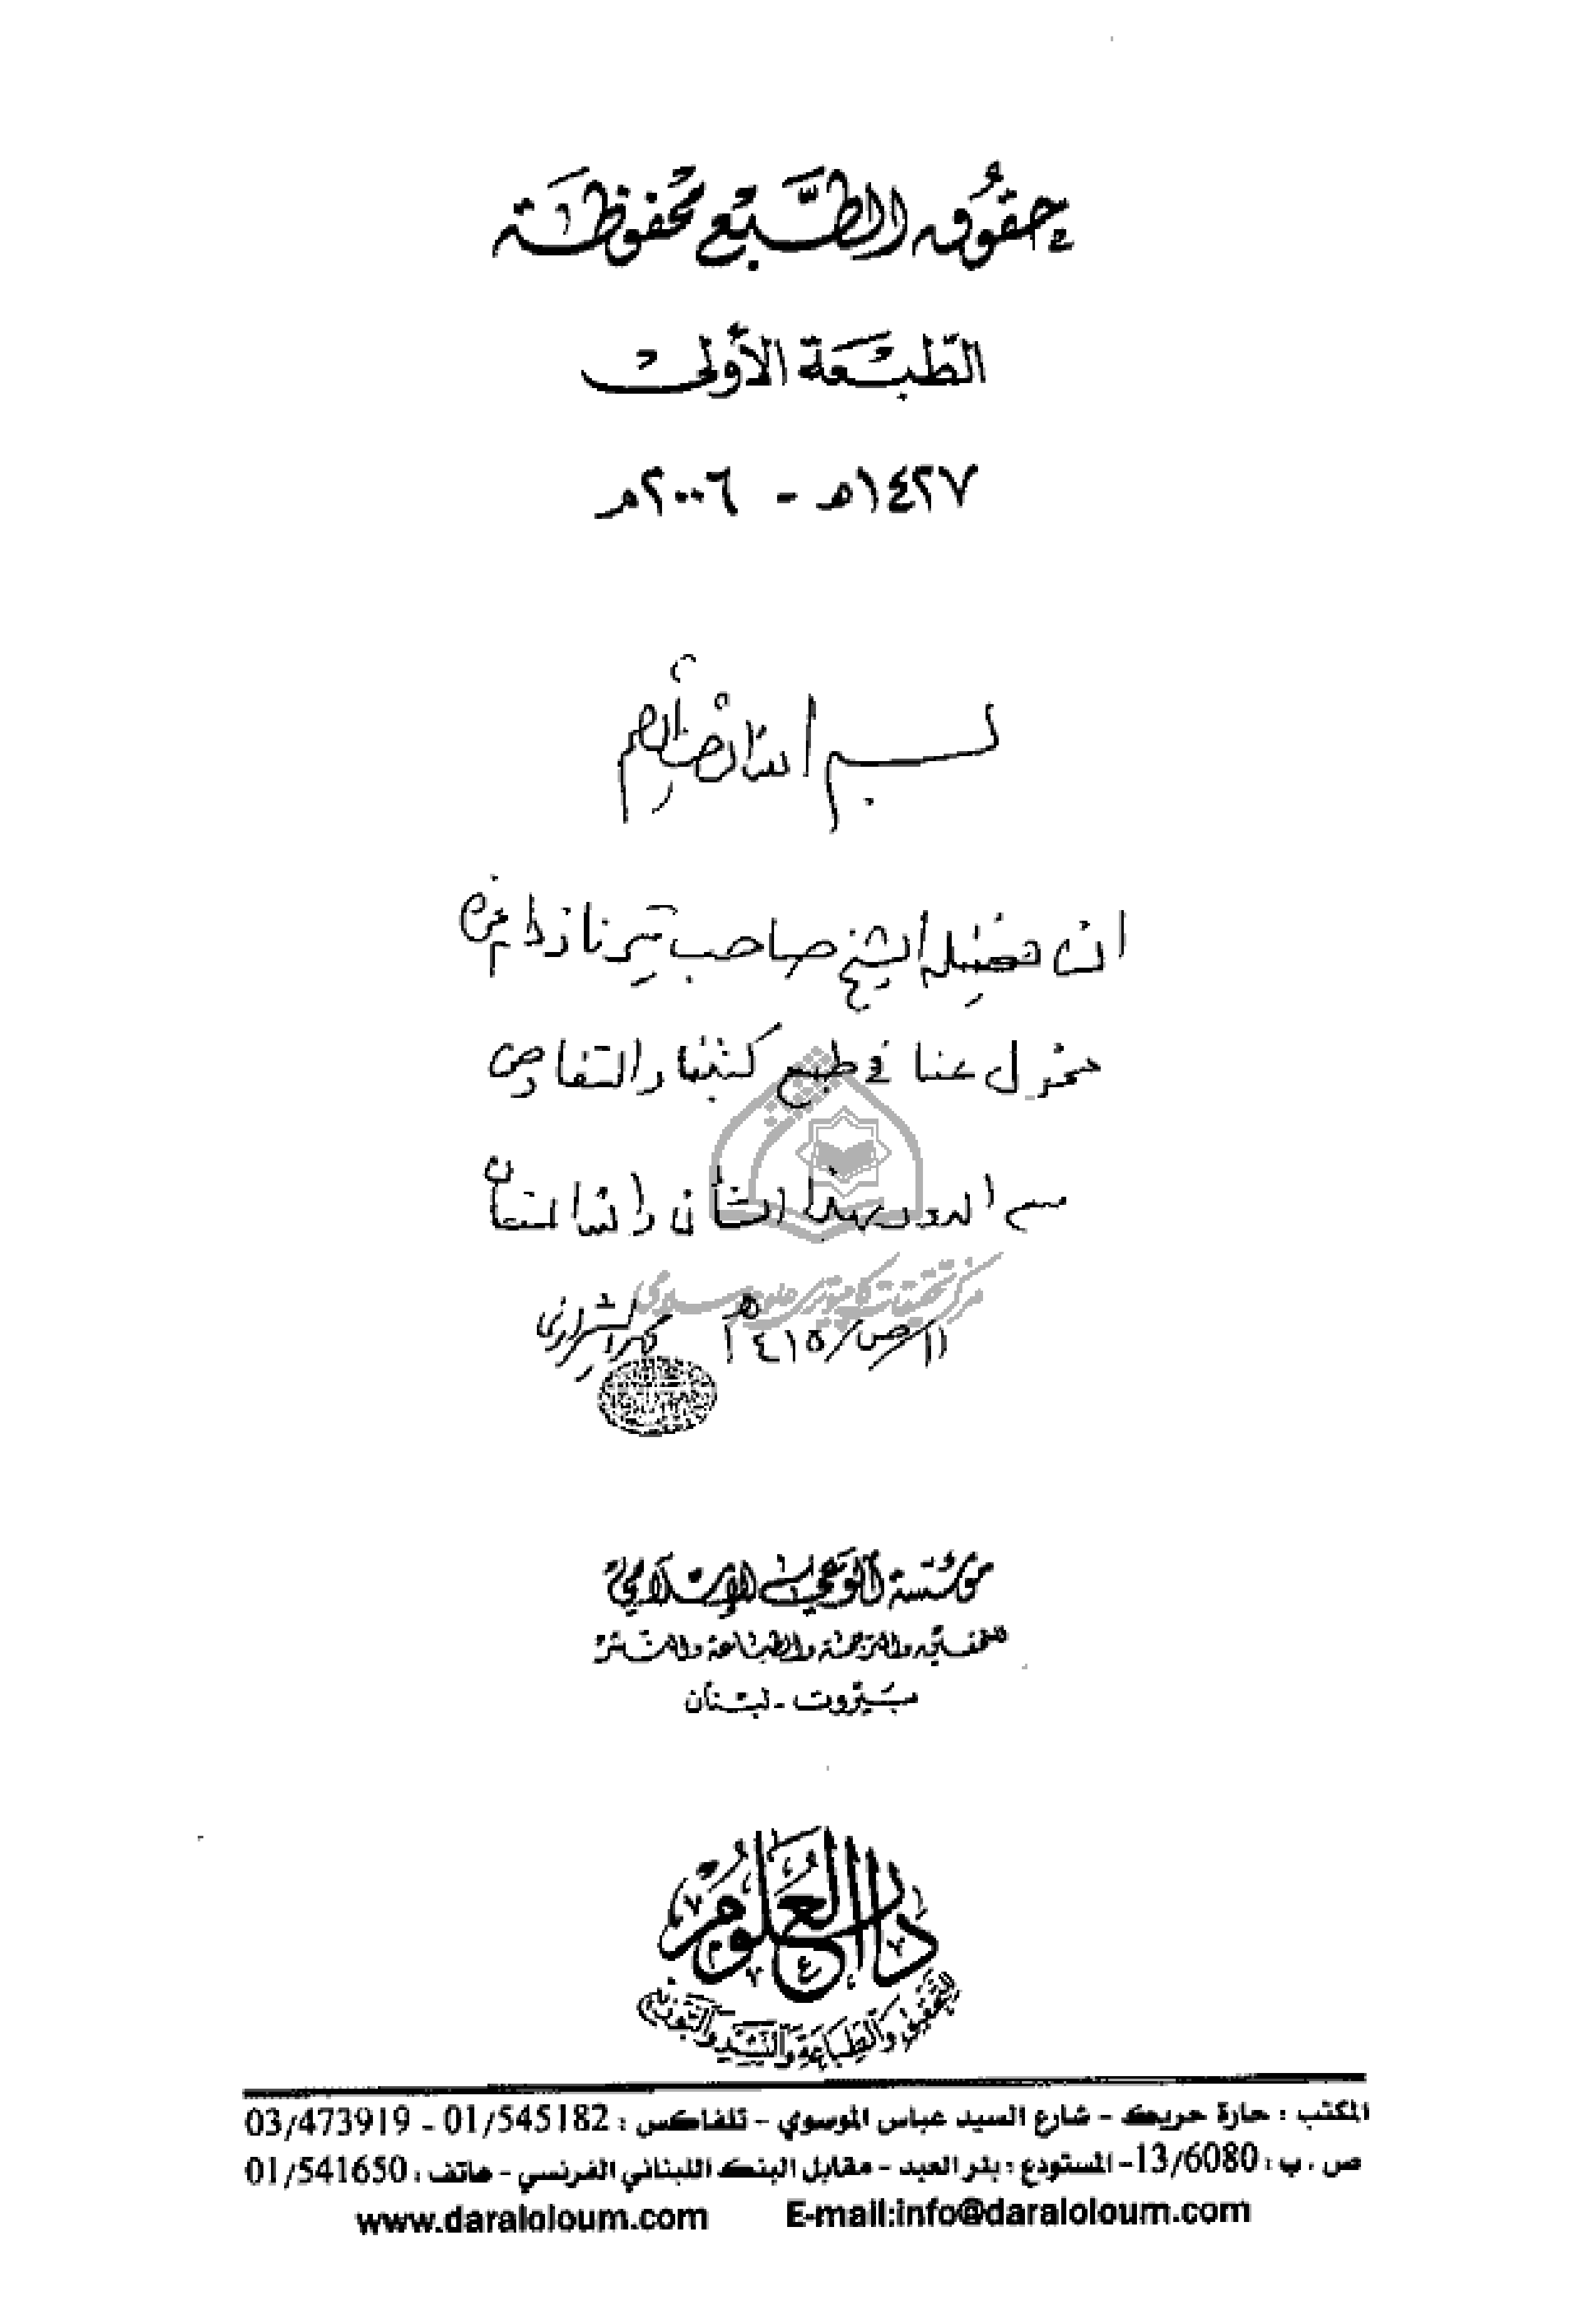 حقوق الطبع محفوظة
الطبعة الأولى
١٤٢٧هـ - ٢٠٠٦م
بسم الله الرحمن الرحيم
ان فضيلة الشيخ صاحب
مخول عنا في طبع كتبنا والتفاوض
مع الدور بهذا الشأن والله المستعان
مركز تحقيقات كامپيوتري علوم اسلامي
١١/ /١٤١٥هـ الشيرازي
مؤسسة الوعي الإسلامي
للتحقيق والترجمة والطباعة والنشر
بيروت - لبنان
دار العلوم
للتحقيق والطباعة والنشر والتوزيع
المكتب : حارة حريك - شارع السيد عباس الموسوي - تلفاكس : 01/545182 - 03/473919
ص . ب : 13/6080 - المستودع : بئر العبد - مقابل البنك اللبناني الفرنسي - هاتف : 01/541650
www.daraloloum.com E-mail:info@daraloloum.com